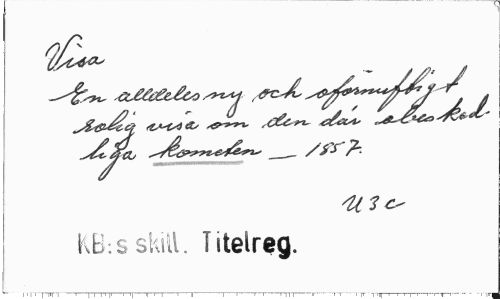 Visa
En alldeles ny och oförnuftigt
rolig visa om den där obesked-
liga kometen — 1857.
U 3 c
KB:s skill. Titelreg.